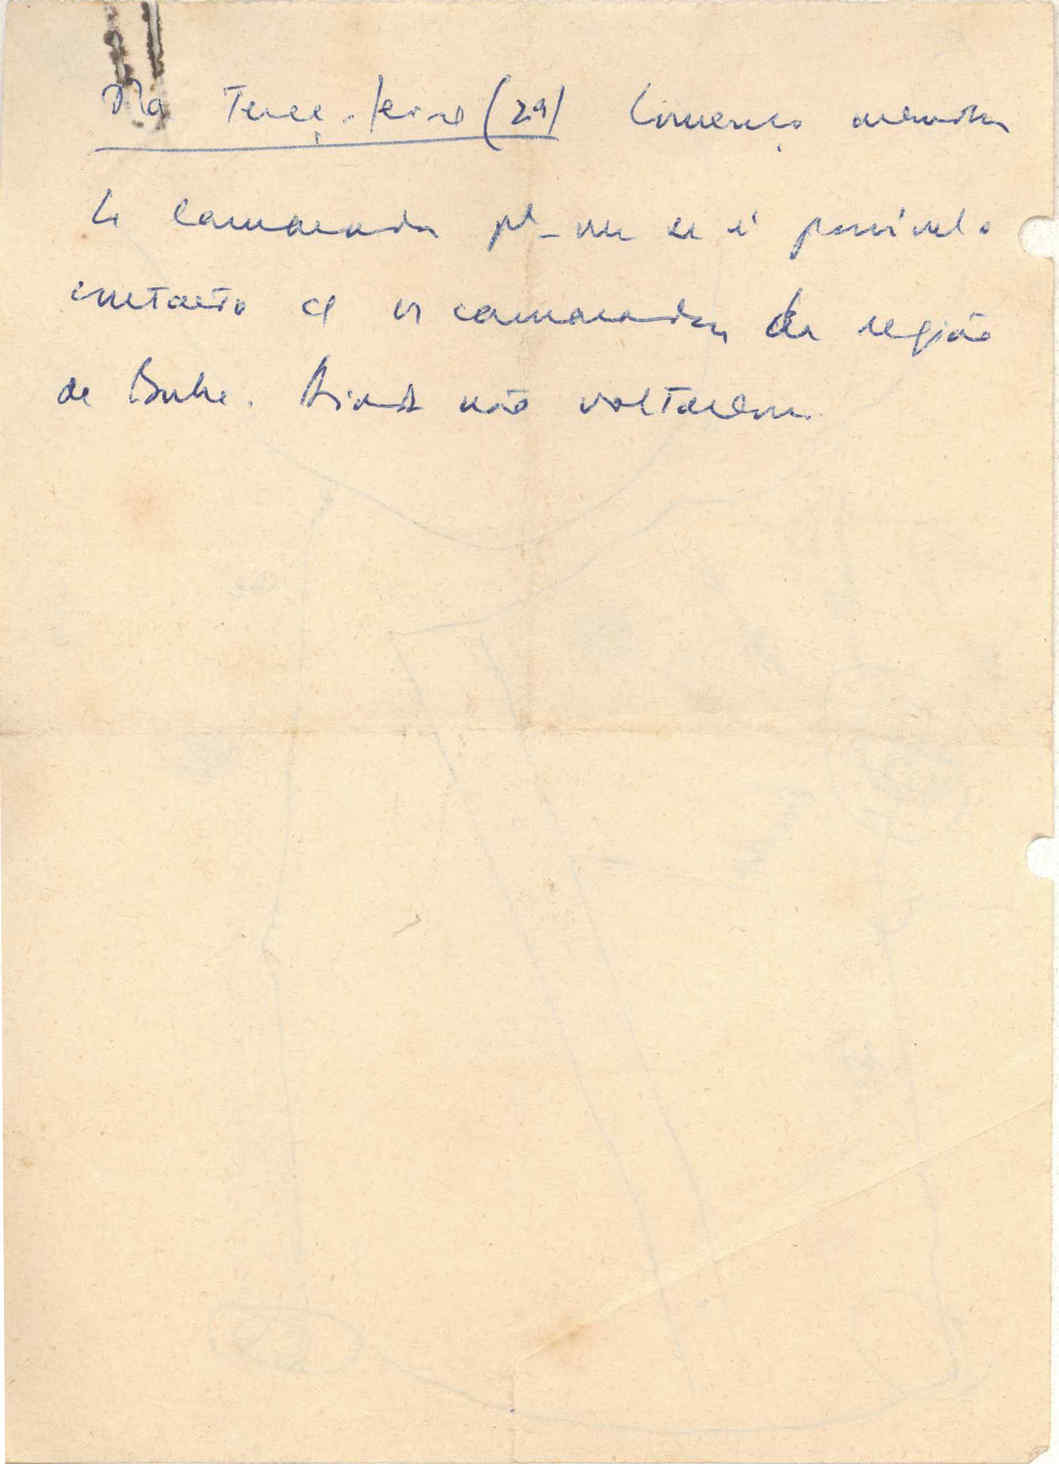 Na Terça-feira (29) Lourenço mandou
camaradas pª ver se é possível o
contacto c/ os camaradas da região
de Buba. Ainda não voltaram.